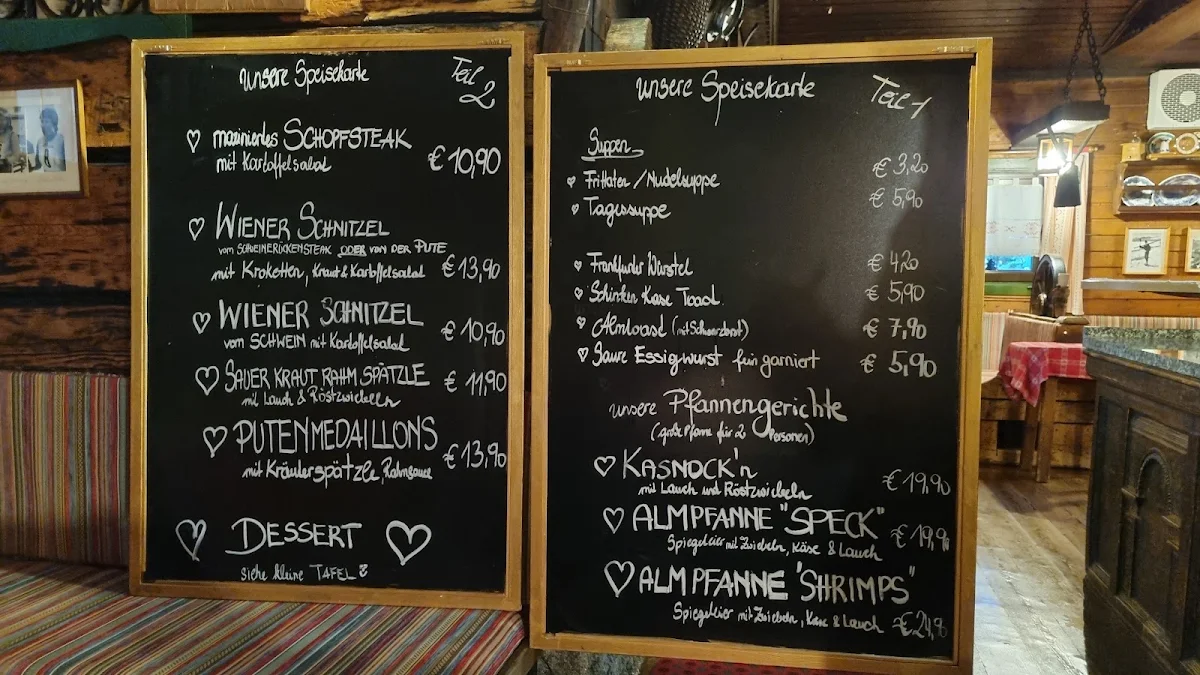 unsere Speisekarte
Teil 2
mariniertes SCHOPFSTEAK
mit Kartoffelsalad
€ 10,90
WIENER SCHNITZEL
vom SCHWEINERÜCKENSTEAK ODER VON DER PUTE
mit Kroketten, Kraut & Kartoffelsalad € 13,90
WIENER SCHNITZEL
vom SCHWEIN mit Kartoffelsalad
€ 10,90
SAUER KRAUT RAHM SPÄTZLE
mit Lauch & Röstzwiebeln
€ 11,90
PUTENMEDAILLONS
mit Kräuterspätzle, Rahmsauce
€ 13,90
DESSERT
siehe kleine TAFEL
unsere Speisekarte
Teil 1
Suppen
Frittaten / Nudelsuppe € 3,20
Tagessuppe € 5,90
Frankfurter Würstel € 4,20
Schinken Käse Toast € 5,90
Almtoast (mit Schwarzbrot) € 7,90
Saure Essigwurst fein garniert € 5,90
unsere Pfannengerichte
(große Pfanne für 2 Personen)
KASNOCK'n
mit Lauch und Röstzwiebeln
€ 19,90
ALMPFANNE "SPECK"
Spiegeleier mit Zwiebeln, Käse & Lauch
€ 19,90
ALMPFANNE "SHRIMPS"
Spiegeleier mit Zwiebeln, Käse & Lauch € 24,90